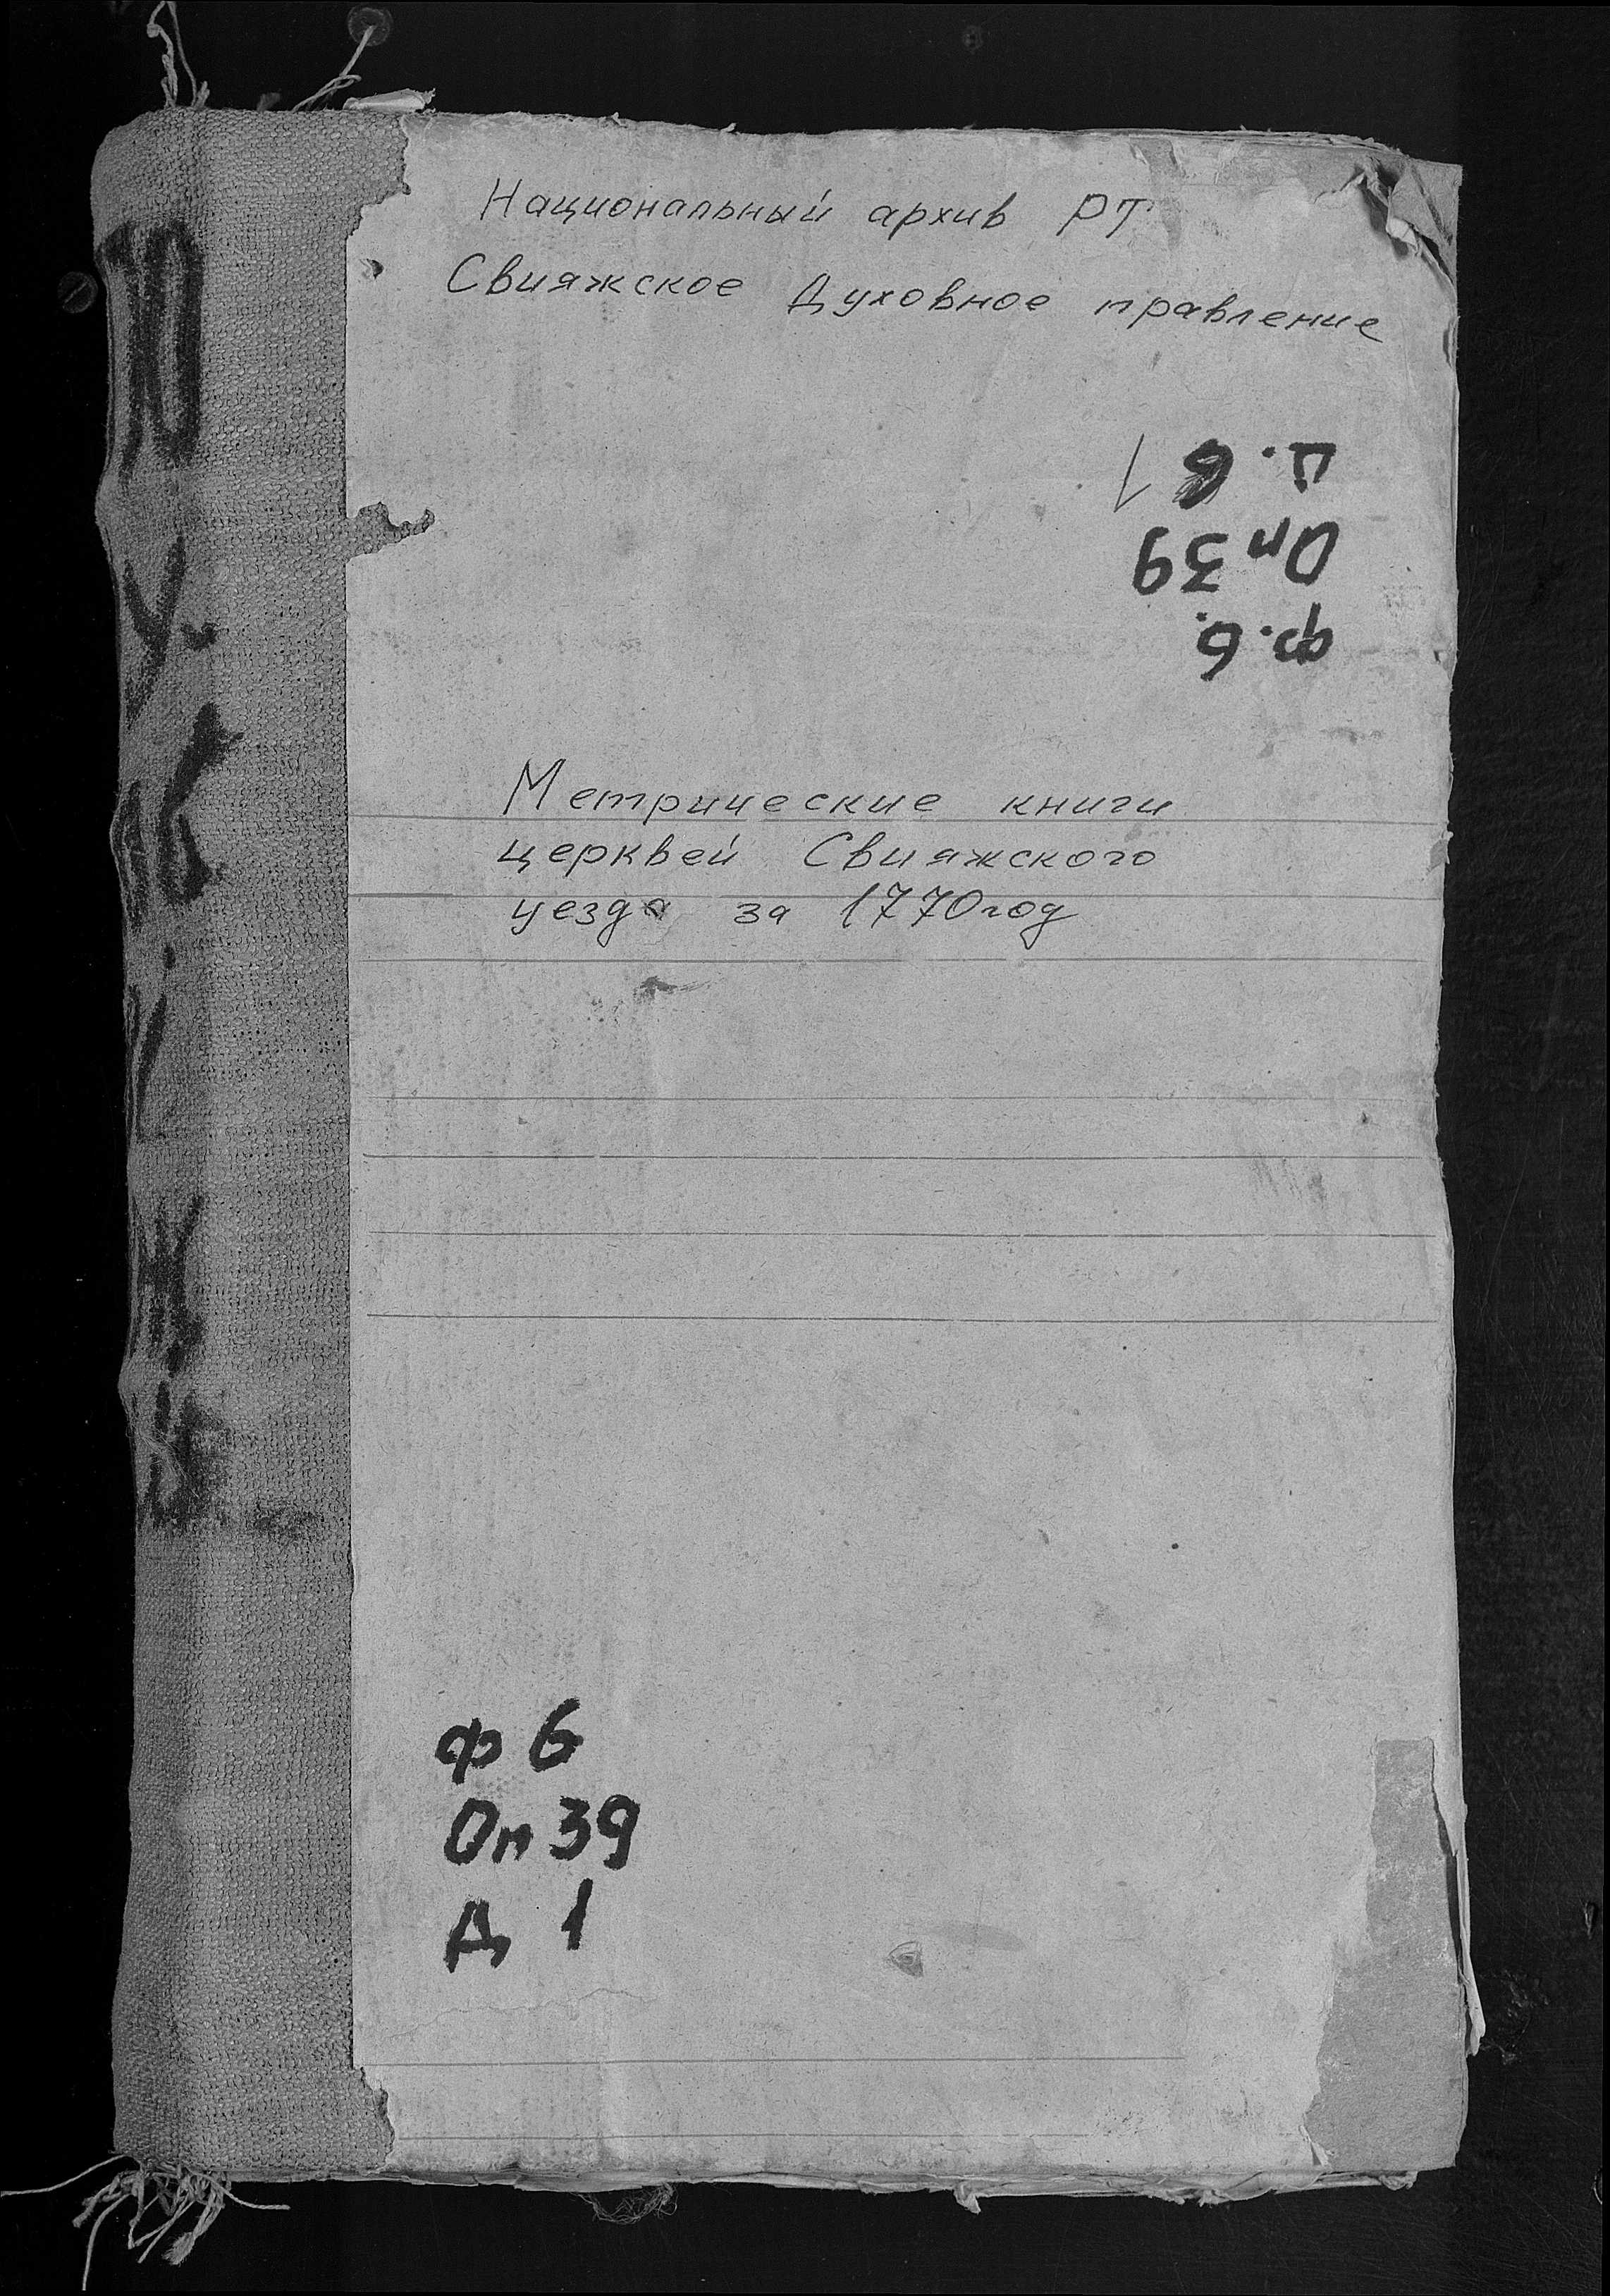 Национальный архив РТ
Свияжское Духовное правление
ф. 6.
Оп 39
д. 1
Метрические книги
церквей Свияжского
уезда за 1770 год
ф 6
Оп 39
Д 1